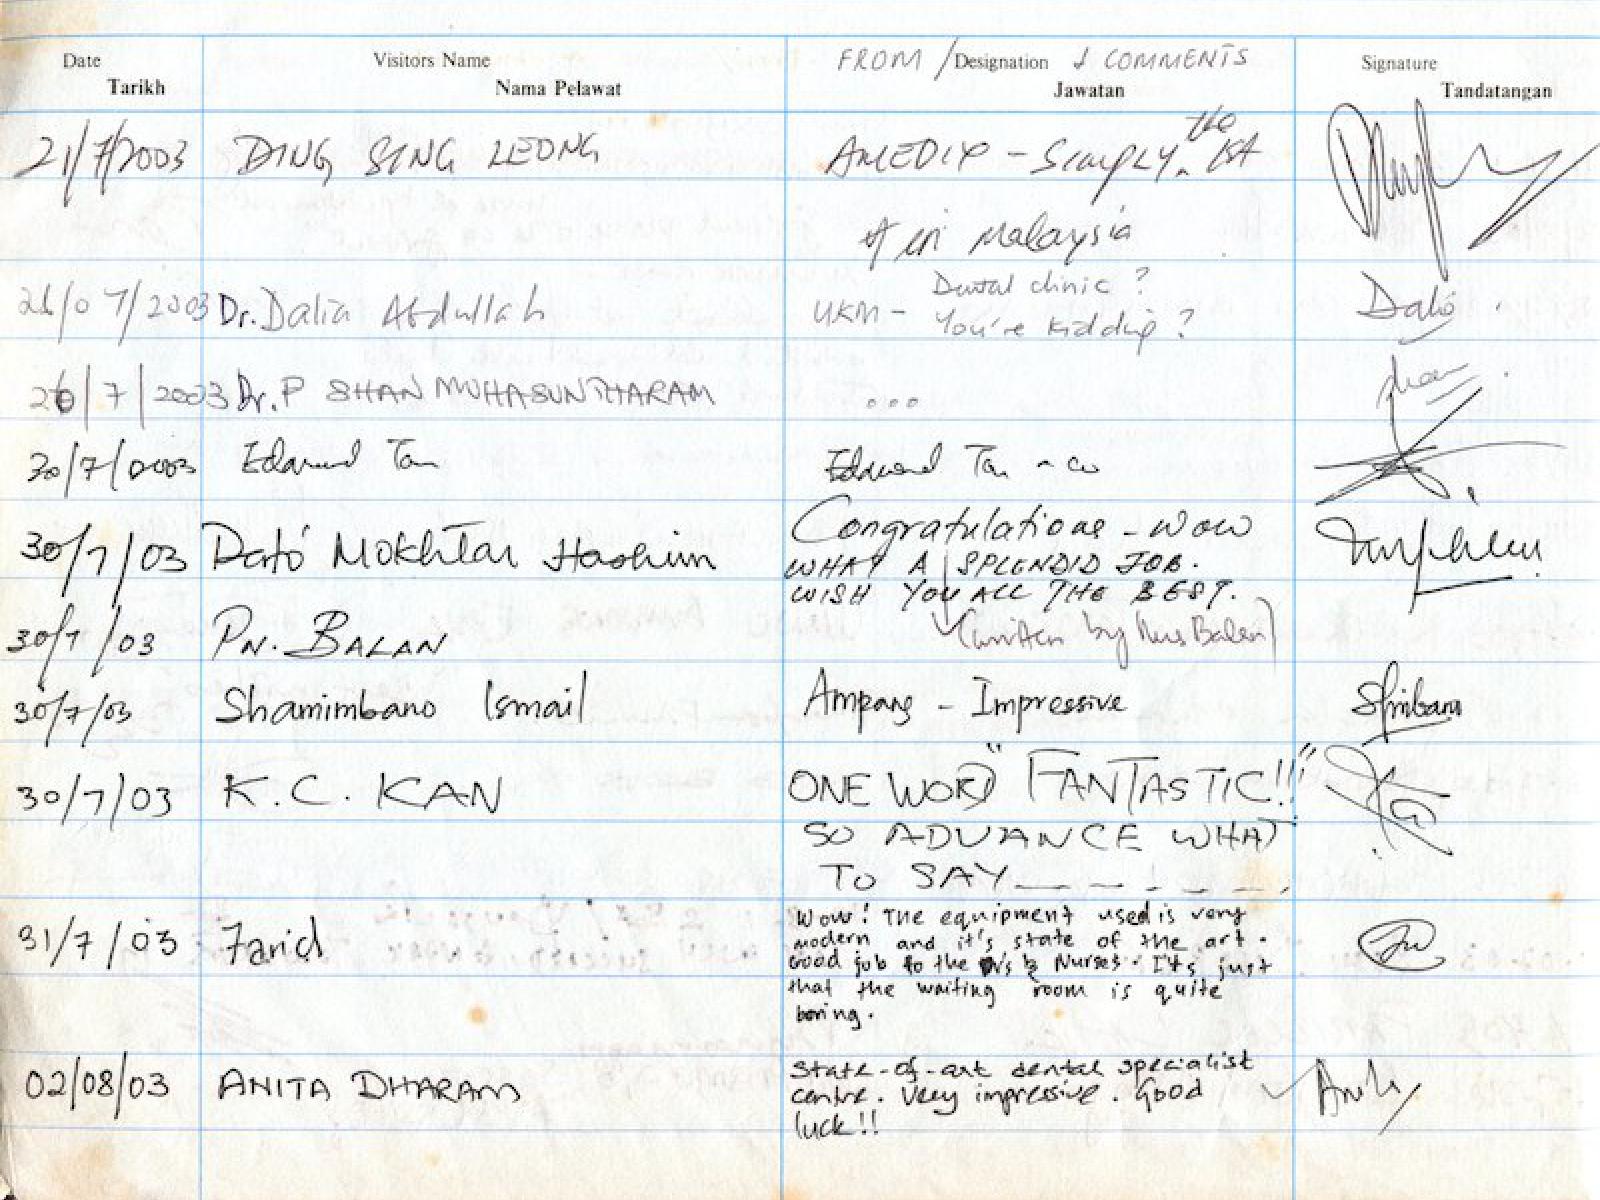 Date Visitors Name FROM / Designation & COMMENTS Signature
Tarikh Nama Pelawat Jawatan Tandatangan
21/7/2003 DING SING LEONG - Simply the 1st
in Malaysia
26/07/2003 Dr. Dalia Abdullah UKM - Dental clinic?
You're kidding?
26/7/2003 Dr. P SHANMUHASUNTHARAM ...
30/7/2003 Edward Tan Edward Tan & Co
30/7/03 Dato' Mokhtar Hashim Congratulations - Wow
WHAT A SPLENDID JOB.
WISH YOU ALL THE BEST.
30/7/03 PN. BALAN (written by Mrs Balan)
30/7/03 Shamimbano Ismail Ampang - Impressive
30/7/03 K.C. KAN ONE WORD "FANTASTIC!!"
SO ADVANCE WHAT
TO SAY _ _ _ _ _ _
31/7/03 Farid Wow! The equipment used is very
modern and it's state of the art.
Good job to the Dr's & Nurses. It's just
that the waiting room is quite
boring.
02/08/03 ANITA DHARAM State-of-art dental specialist
centre. Very impressive. Good
luck!!